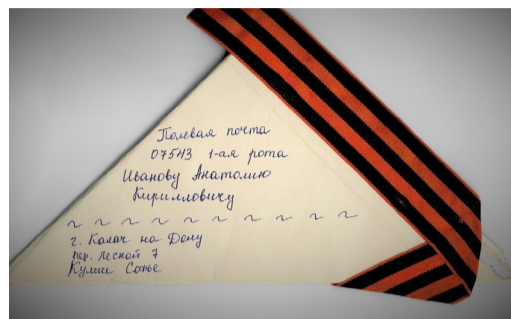 Полевая почта
07543 1-ая рота
Иванову Анатолию
Кирилловичу
г. Калач на Дону
пер. Лесной 7
Кулиш Софье